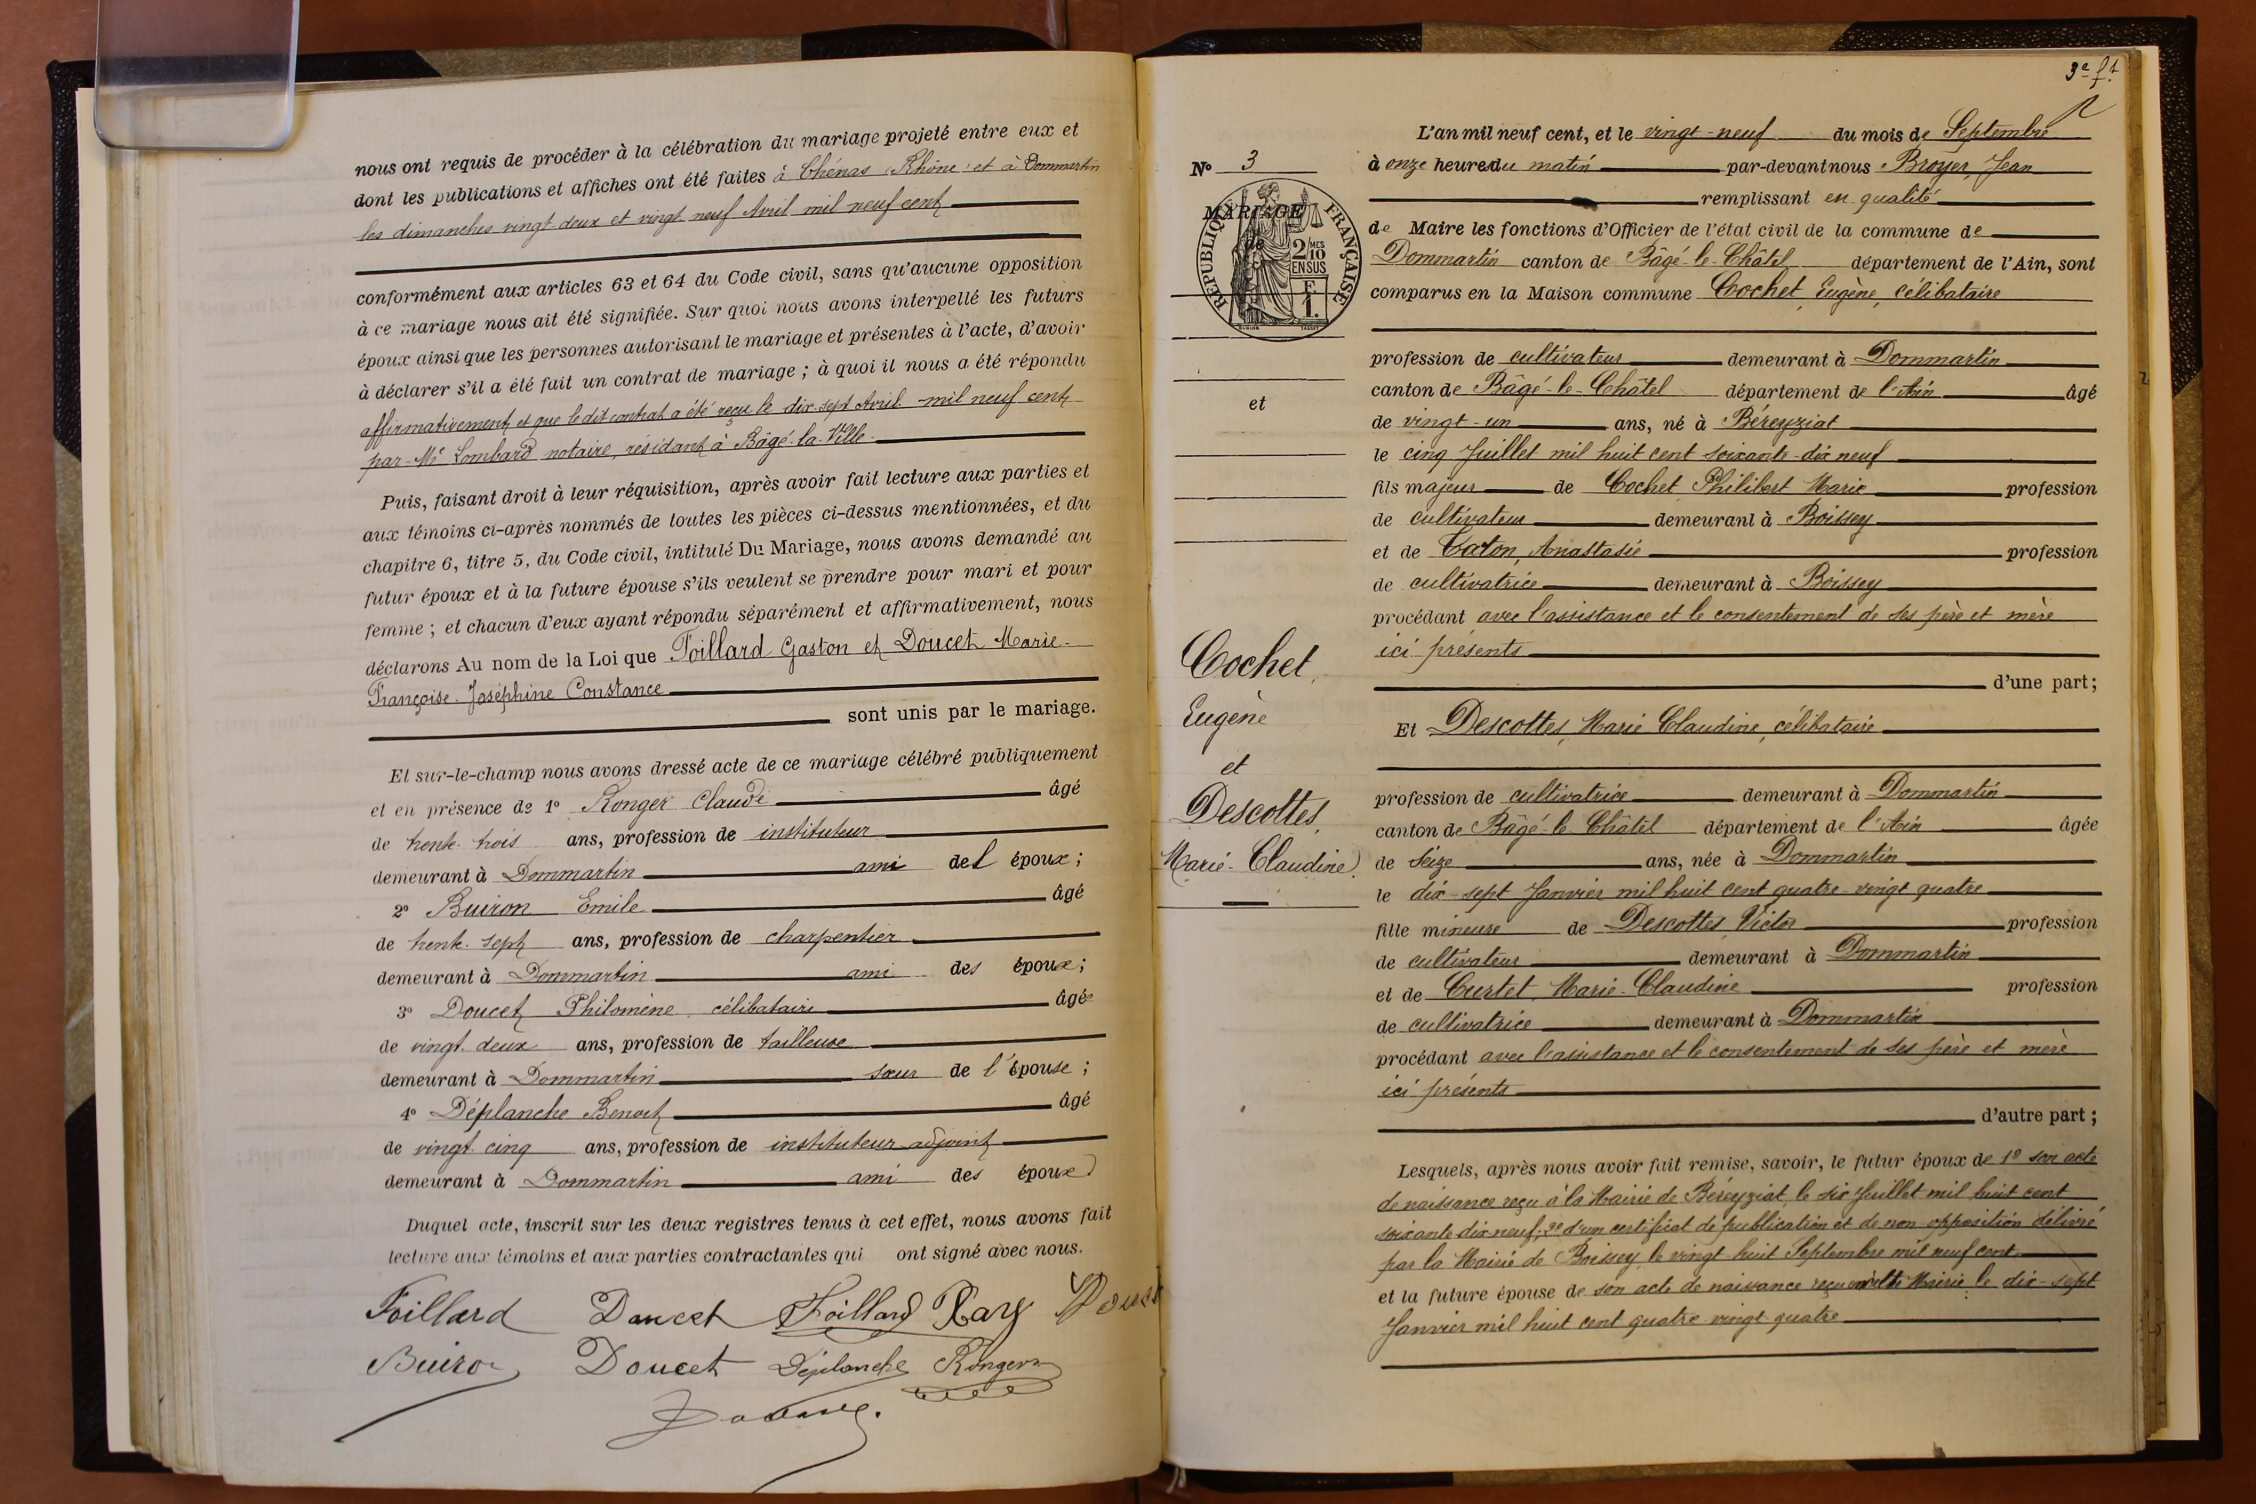 nous ont requis de procéder à la célébration du mariage projeté entre eux et
dont les publications et affiches ont été faites à Chénas (Rhône) et à Dommartin
les dimanches vingt-deux et vingt neuf Avril mil neuf cent
conformément aux articles 63 et 64 du Code civil, sans qu'aucune opposition
à ce mariage nous ait été signifiée. Sur quoi nous avons interpellé les futurs
époux ainsi que les personnes autorisant le mariage et présentes à l'acte, d'avoir
à déclarer s'il a été fait un contrat de mariage ; à quoi il nous a été répondu
affirmativement et que ledit contrat a été reçu le dix-sept Avril mil neuf cent
par Me Lombard notaire, résidant à Bâgé-la-Ville
Puis, faisant droit à leur réquisition, après avoir fait lecture aux parties et
aux témoins ci-après nommés de toutes les pièces ci-dessus mentionnées, et du
chapitre 6, titre 5, du Code civil, intitulé Du Mariage, nous avons demandé au
futur époux et à la future épouse s'ils veulent se prendre pour mari et pour
femme ; et chacun d'eux ayant répondu séparément et affirmativement, nous
déclarons Au nom de la Loi que Foillard Gaston et Doucet Marie-
Françoise-Joséphine Constance
sont unis par le mariage.
Et sur-le-champ nous avons dressé acte de ce mariage célébré publiquement
et en présence de 1º Ronger Claude âgé
de trente-trois ans, profession de instituteur
demeurant à Dommartin ami de l époux ;
2º Buiron Emile âgé
de trente-sept ans, profession de charpentier
demeurant à Dommartin ami des époux ;
3º Doucet Philomène, célibataire âgée
de vingt-deux ans, profession de tailleuse
demeurant à Dommartin sœur de l'épouse ;
4º Déplanche Benoit âgé
de vingt cinq ans, profession de instituteur adjoint
demeurant à Dommartin ami des époux
Duquel acte, inscrit sur les deux registres tenus à cet effet, nous avons fait
lecture aux témoins et aux parties contractantes qui ont signé avec nous.
Foillard Doucet Foillard Ray
Buiron Doucet Déplanche Ronger
3e ft
Nº 3
MARIAGE
de
RÉPUBLIQUE FRANÇAISE
2 MES
10
EN SUS
F.
1.
et
Cochet,
Eugène
et
Descottes,
Marie-Claudine
L'an mil neuf cent, et le vingt-neuf du mois de Septembre
à onze heures du matin par-devant nous Broyer, Jean
remplissant en qualité
de Maire les fonctions d'Officier de l'état civil de la commune de
Dommartin canton de Bâgé-le-Châtel département de l'Ain, sont
comparus en la Maison commune Cochet, Eugène, célibataire
profession de cultivateur demeurant à Dommartin
canton de Bâgé-le-Châtel département de l'Ain âgé
de vingt-un ans, né à Béreyziat
le cinq Juillet mil huit cent soixante-dix neuf
fils majeur de Cochet Philibert Marie profession
de cultivateur demeurant à Boissey
et de Caton, Anastasie profession
de cultivatrice demeurant à Boissey
procédant avec l'assistance et le consentement de ses père et mère
ici présents
d'une part ;
Et Descottes, Marie Claudine, célibataire
profession de cultivatrice demeurant à Dommartin
canton de Bâgé-le-Châtel département de l'Ain âgée
de seize ans, née à Dommartin
le dix-sept Janvier mil huit cent quatre-vingt quatre
fille mineure de Descottes Victor profession
de cultivateur demeurant à Dommartin
et de Curtet, Marie-Claudine profession
de cultivatrice demeurant à Dommartin
procédant avec l'assistance et le consentement de ses père et mère
ici présents
d'autre part ;
Lesquels, après nous avoir fait remise, savoir, le futur époux de 1º son acte
de naissance reçu à la Mairie de Béreyziat, le six Juillet mil huit cent
soixante dix neuf ; 2º d'un certificat de publication et de non opposition délivré
par la Mairie de Boissey, le vingt-huit Septembre mil neuf cent
et la future épouse de son acte de naissance reçu Mairie le dix-sept
Janvier mil huit cent quatre-vingt-quatre